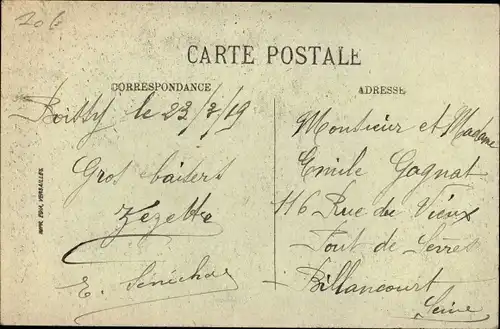 CARTE POSTALE
CORRESPONDANCE
ADRESSE
Poissy le 23/3/19
Gros baisers
Zezette
E. Sénéchal
Monsieur et Madame
Emile Gagnat
116 Rue du Vieux
Pont de Sèvres
Billancourt
Seine
IMPR. EDIA, VERSAILLES